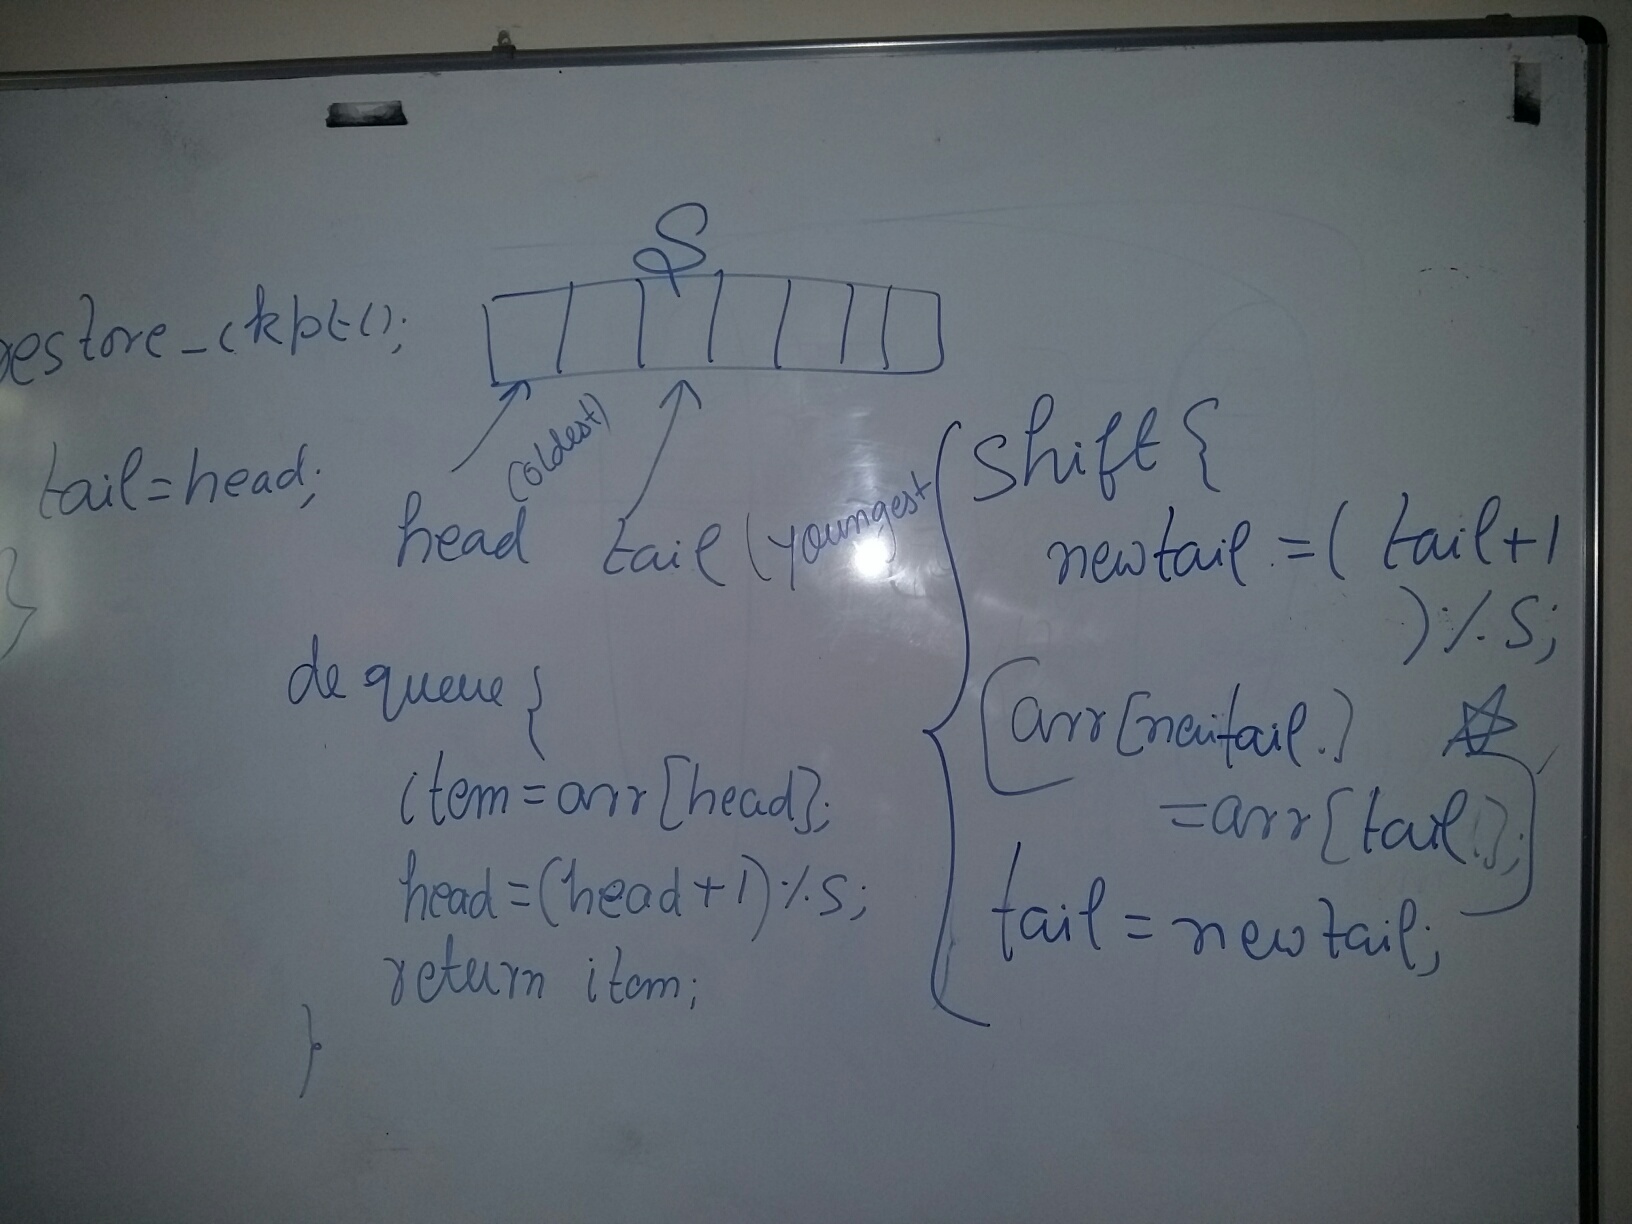 S
restore_ckpt();
tail=head;
}
(oldest)
head tail (youngest
dequeue{
item=arr[head];
head=(head+1)%S;
return item;
}
shift{
newtail=(tail+1
)%S;
arr[newtail]
=arr[tail];
tail=newtail;